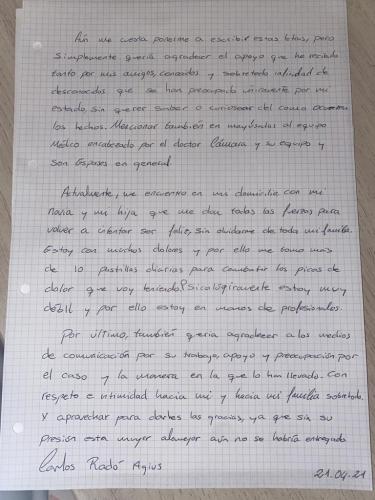 Aún me cuesta ponerme a escribir estas letras, pero
simplemente quería agradecer el apoyo que he recibido
tanto por mis amigos, conocidos y sobretodo infinidad de
desconocidos que se han preocupado únicamente por mi
estado, sin querer saber o curiosear del como ocurrieron
los hechos. Mencionar también en mayúsulas al equipo
Médico encabezado por el doctor Cámara y su equipo y
Son Espases en general.
Actualmente, me encuentro en mi domicilio con mi
novia y mi hija que me dan todas las fuerzas para
volver a intentar ser feliz, sin olvidarme de toda mi familia.
Estoy con muchos dolores y por ello me tomo más
de 10 pastillas diarias para combatir los picos de
dolor que voy teniendo. Psicológicamente estoy muy
débil y por ello estoy en manos de profesionales.
Por último, también quería agradecer a los medios
de comunicación por su trabajo, apoyo y preocupación por
el caso y la manera en la que lo han llevado. Con
respeto e intimidad hacia mi y hacia mi familia sobretodo.
Y aprovechar para darles las gracias, ya que sin su
presión esta mujer alomejor aún no se habría entregado
Carlos Radó Agius
21.04.21